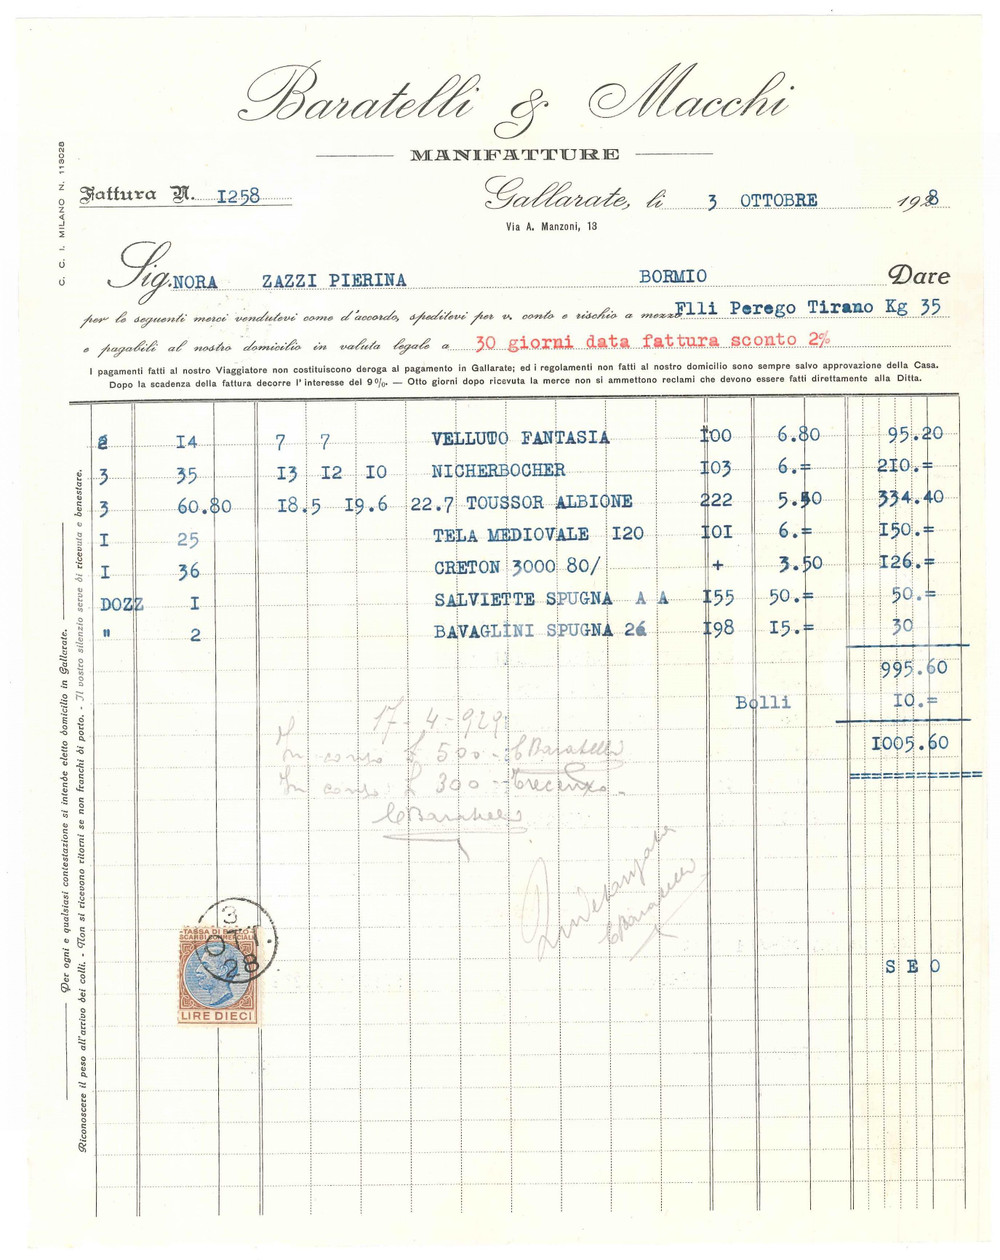 Baratelli & Macchi
MANIFATTURE
Fattura N. 1258
Gallarate, li 3 OTTOBRE 1928
Via A. Manzoni, 13
C. C. I. MILANO N. 113028
Sig.NORA ZAZZI PIERINA BORMIO Dare
per le seguenti merci vendutevi come d'accordo, speditevi per v. conto e rischio a mezzo Flli Perego Tirano Kg 35
e pagabili al nostro domicilio in valuta legale a 30 giorni data fattura sconto 2%
I pagamenti fatti al nostro Viaggiatore non costituiscono deroga al pagamento in Gallarate; ed i regolamenti non fatti al nostro domicilio sono sempre salvo approvazione della Casa.
Dopo la scadenza della fattura decorre l'interesse del 9%. — Otto giorni dopo ricevuta la merce non si ammettono reclami che devono essere fatti direttamente alla Ditta.
2 I4 7 7 VELLUTO FANTASIA I00 6.80 95.20
3 35 I3 I2 I0 NICHERBOCHER I03 6.= 2I0.=
3 60.80 I8.5 I9.6 22.7 TOUSSOR ALBIONE 222 5.50 334.40
I 25 TELA MEDIOVALE I20 I0I 6.= I50.=
I 36 CRETON 3000 80/ + 3.50 I26.=
DOZZ I SALVIETTE SPUGNA A A I55 50.= 50.=
" 2 BAVAGLINI SPUGNA 26 I98 I5.= 30
995.60
Bolli I0.=
I005.60
17-4-929
In conto £ 500 - C Baratelli
In conto £ 300 - trecento
C Baratelli
C Baratelli
S E O
3
OTT.
28
TASSA DI BOLLO
SCAMBI COMMERCIALI
LIRE DIECI
Per ogni e qualsiasi contestazione si intende eletto domicilio in Gallarate.
Riconoscere il peso all'arrivo dei colli. - Non si ricevono ritorni se non franchi di porto. - Il vostro silenzio serve di ricevuta e benestare.